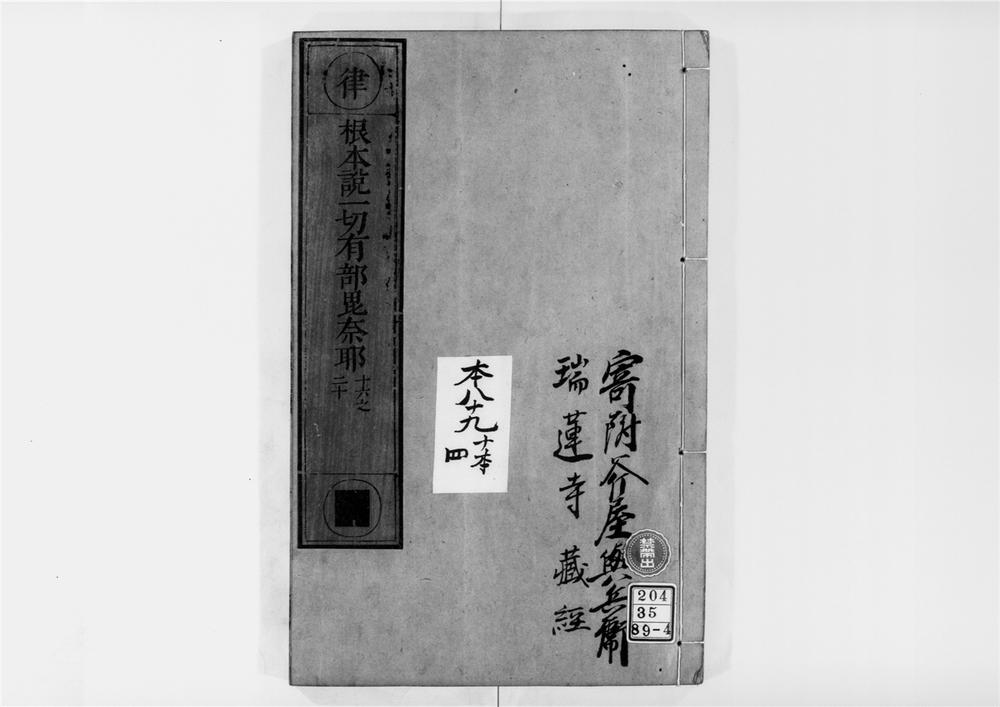 寄附芥屋與兵衛
瑞蓮寺藏經
禁帶出
204
35
89-4
本八十九
十本
四
律
根本説一切有部毘奈耶
十六之
二十